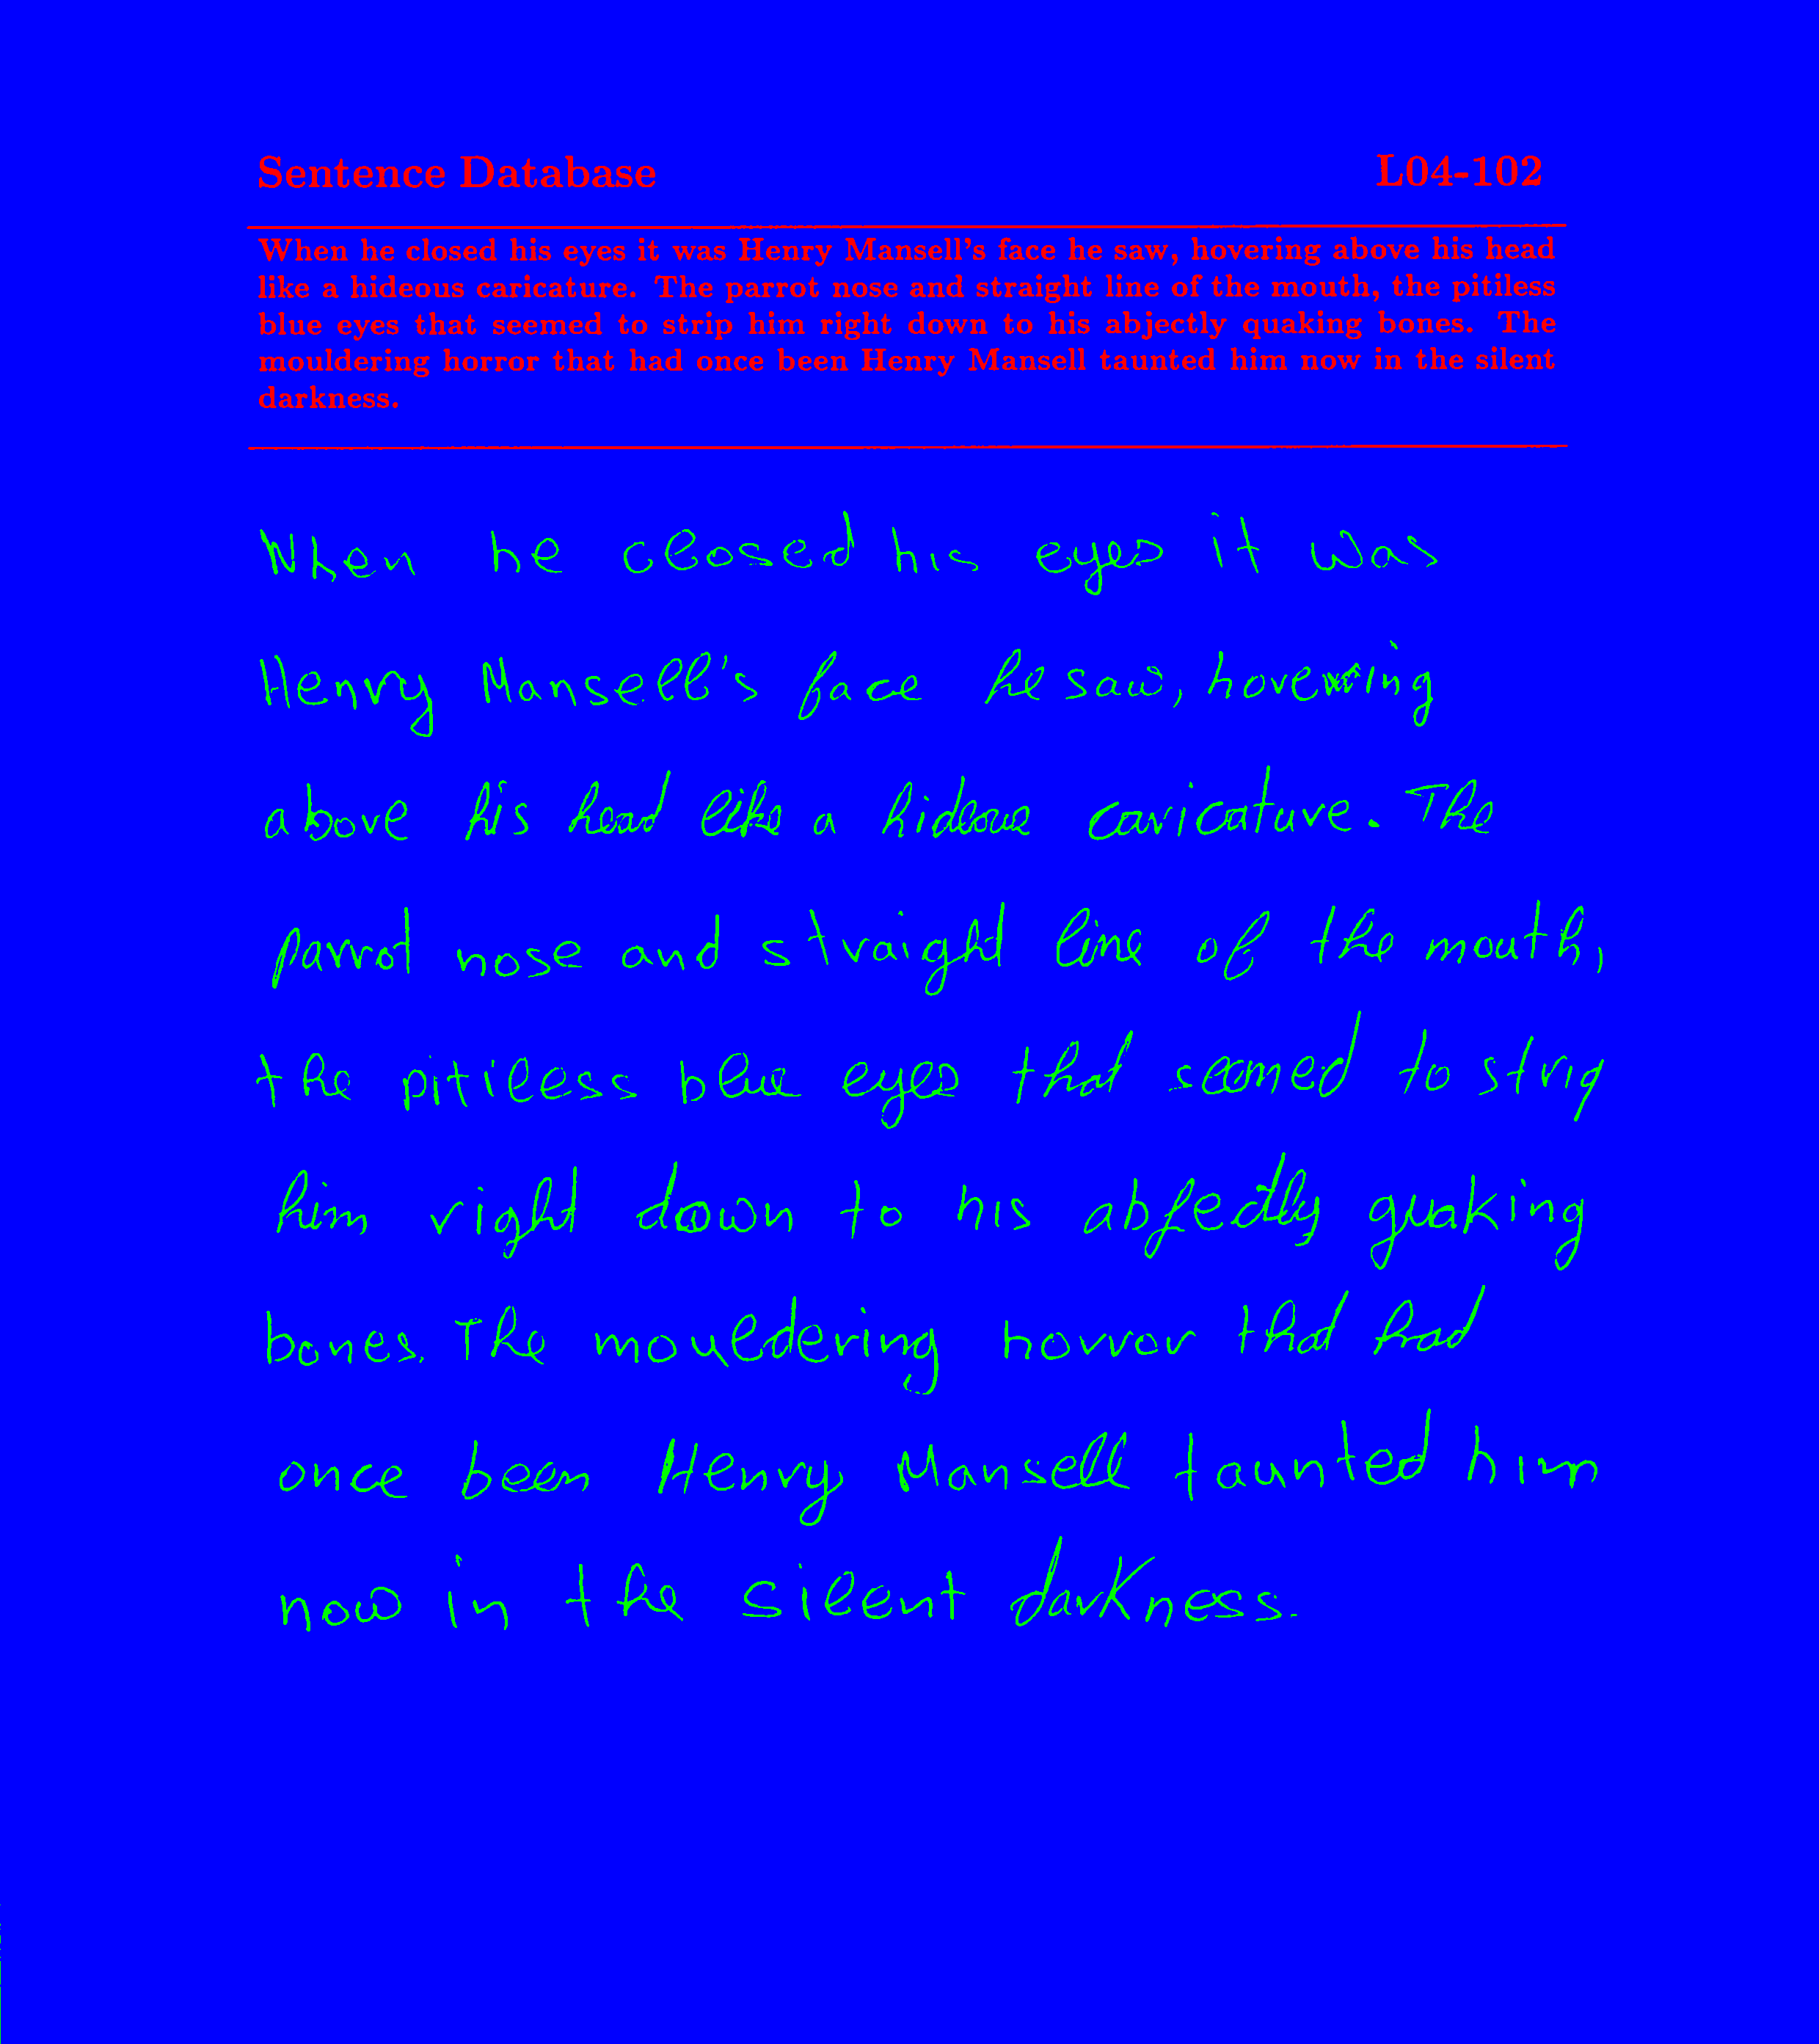 Sentence Database L04-102
When he closed his eyes it was Henry Mansell's face he saw, hovering above his head
like a hideous caricature. The parrot nose and straight line of the mouth, the pitiless
blue eyes that seemed to strip him right down to his abjectly quaking bones. The
mouldering horror that had once been Henry Mansell taunted him now in the silent
darkness.
When he closed his eyes it was
Henry Mansell's face he saw, hovering
above his head like a hideous caricature. The
parrot nose and straight line of the mouth,
the pitiless blue eyes that seemed to strip
him right down to his abjectly quaking
bones. The mouldering horror that had
once been Henry Mansell taunted him
now in the silent darkness.